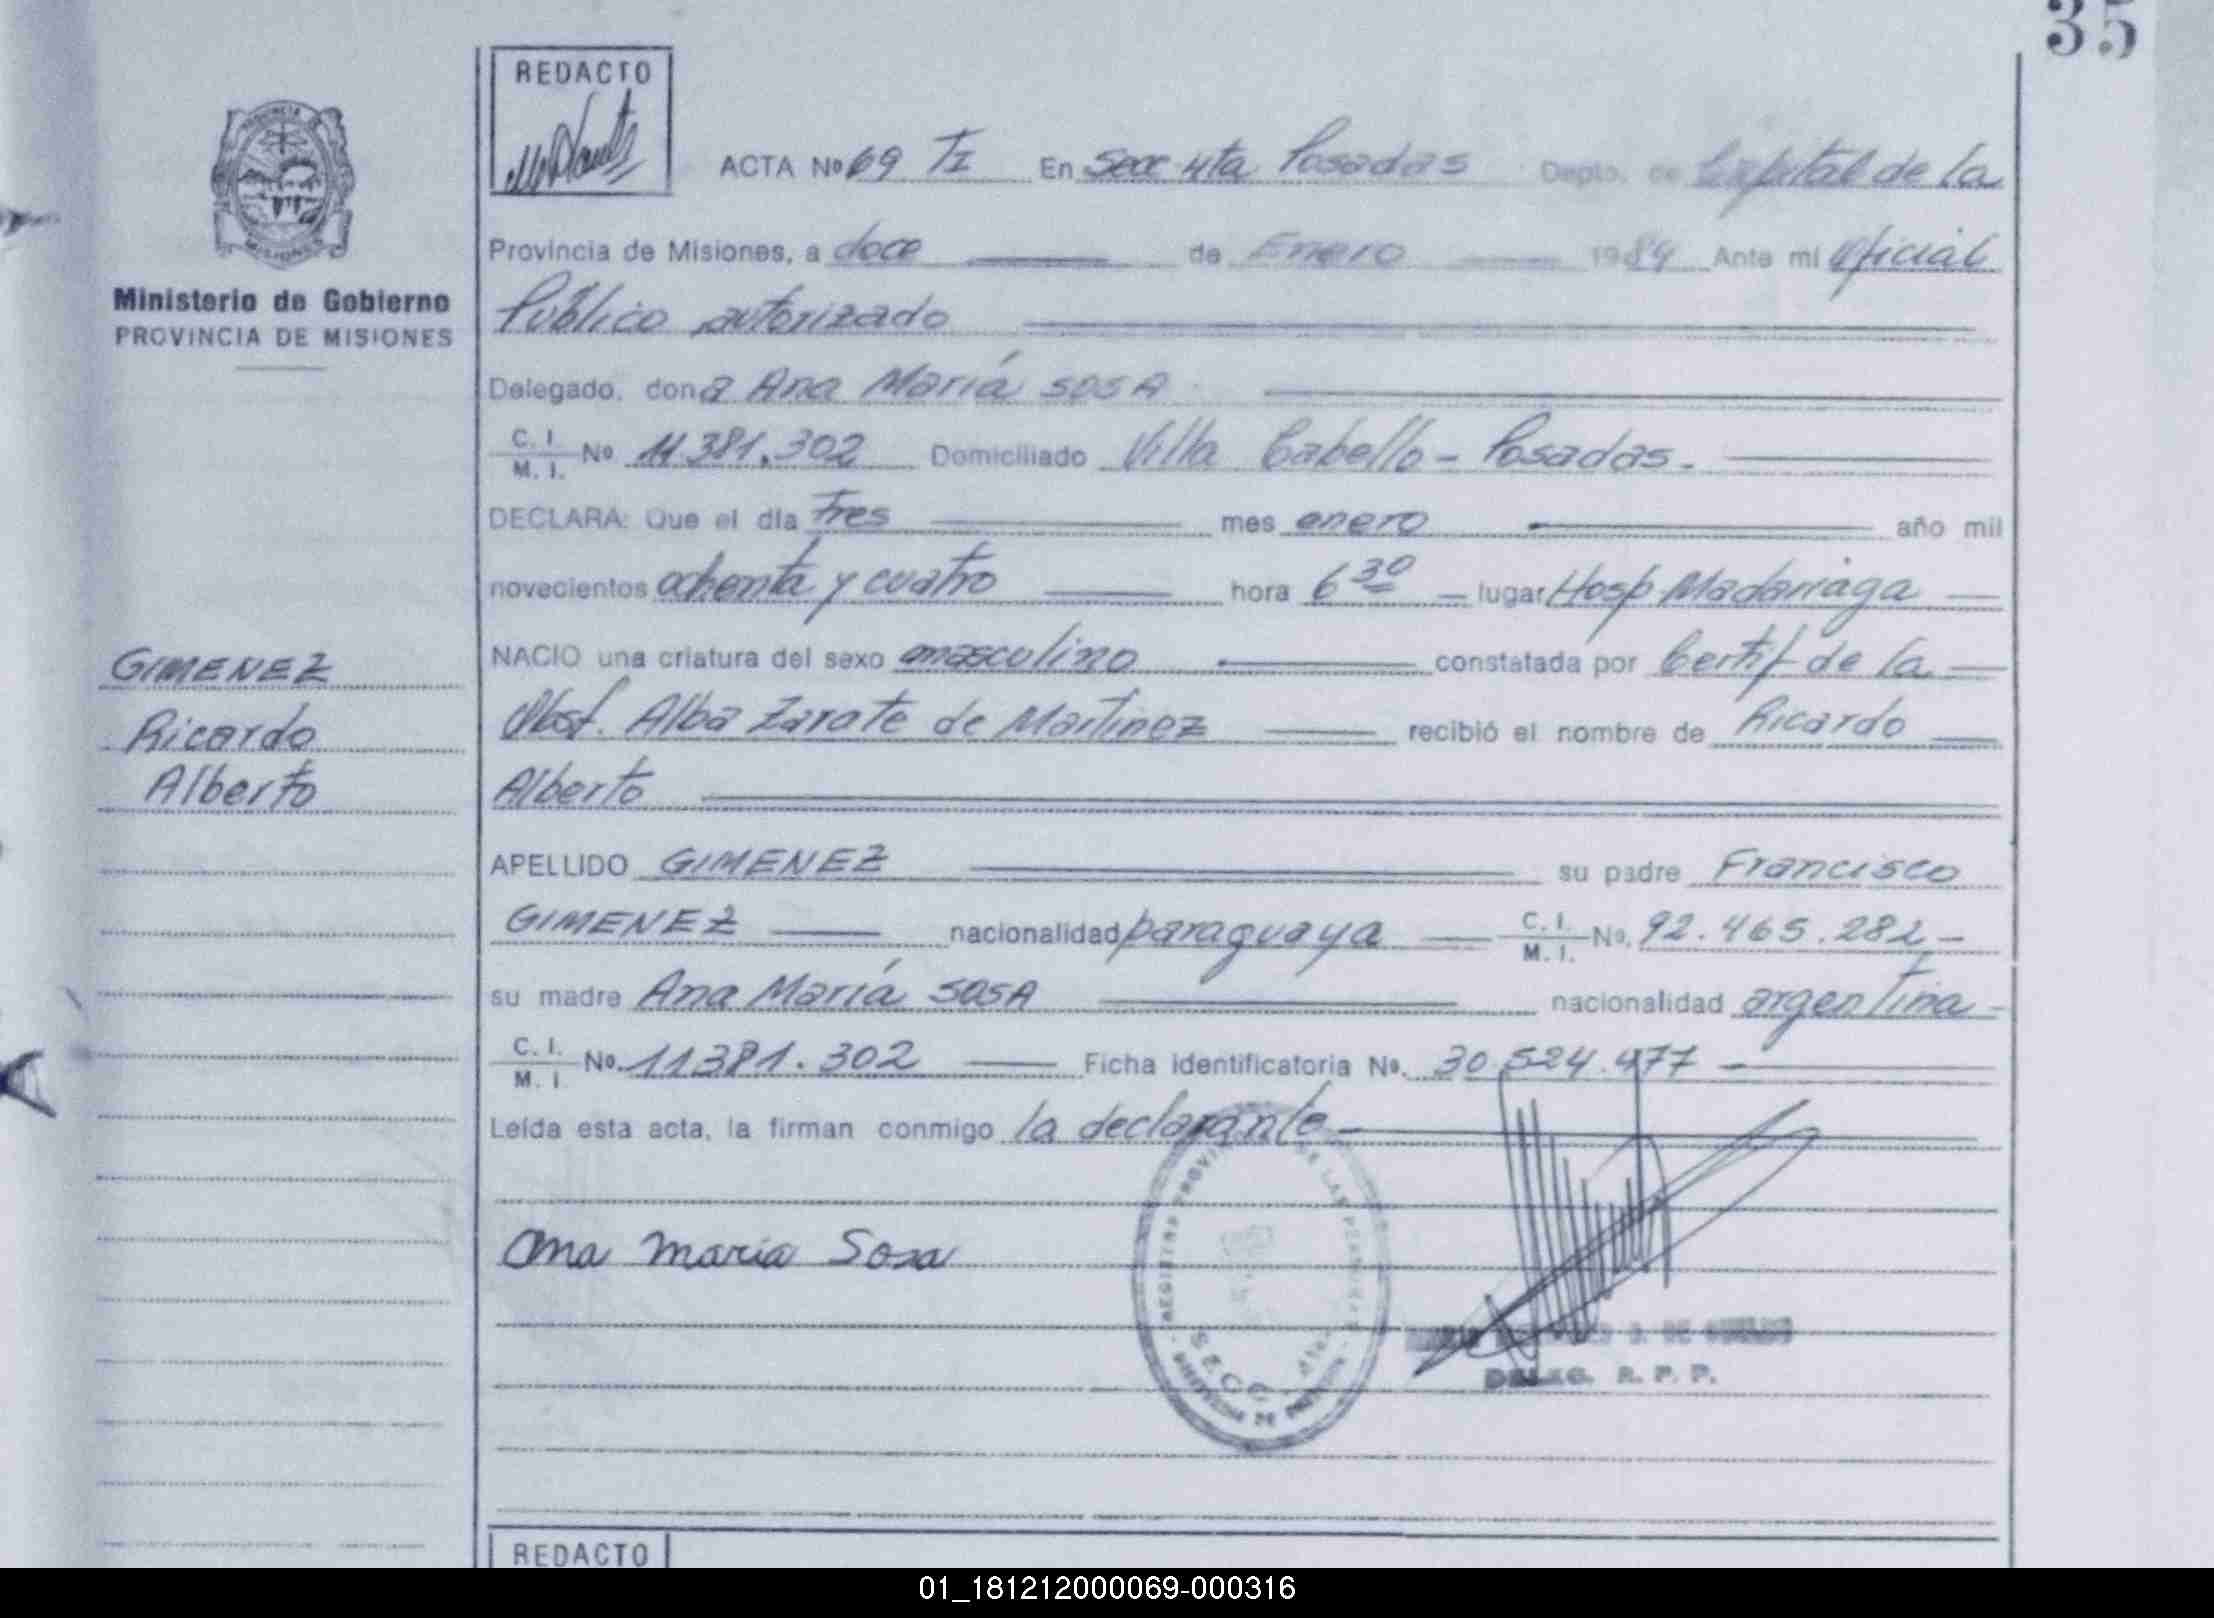 35
REDACTO
ACTA Nº 69 TI En Secc 4ta Posadas Depto. de Capital de la
Provincia de Misiones, a doce de Enero 1984 Ante mi Oficial
Público autorizado
Ministerio de Gobierno
PROVINCIA DE MISIONES
Delegado, don a Ana María SOSA
C. I. / M. I. Nº 11.381.302 Domiciliado Villa Cabello - Posadas.
DECLARA: Que el día tres mes enero año mil
novecientos ochenta y cuatro hora 6 30 lugar Hosp. Madariaga
NACIO una criatura del sexo masculino constatada por Certif de la
Obst. Alba Zarate de Martinez recibió el nombre de Ricardo
Alberto
GIMENEZ
Ricardo
Alberto
APELLIDO GIMENEZ su padre Francisco
GIMENEZ nacionalidad paraguaya C. I. / M. I. Nº. 92.465.282 -
su madre Ana María SOSA nacionalidad argentina -
C. I. / M. I. Nº. 11381.302 Ficha identificatoria Nº. 30.524.477 -
Leída esta acta, la firman conmigo la declarante -
Ana maria Sosa
DELEG. R. P. P.
REDACTO
01_181212000069-000316